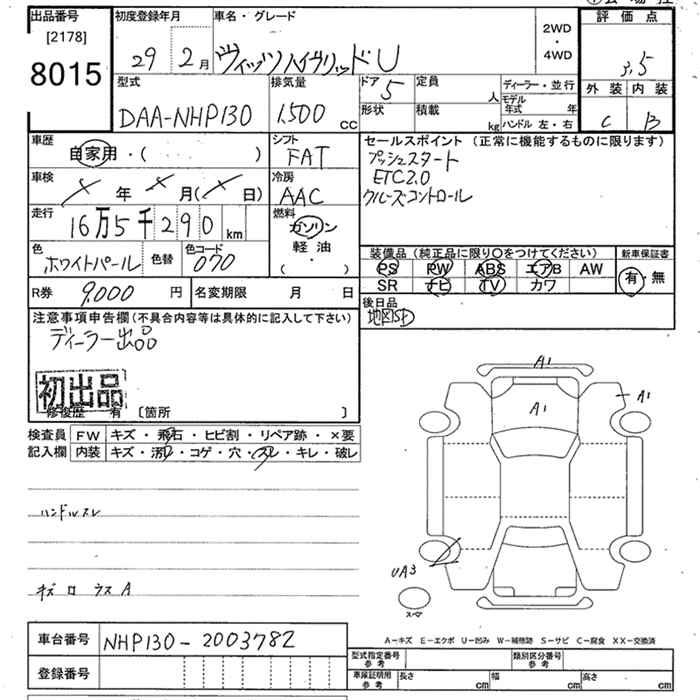 出品番号
[2178]
8015
初度登録年月
29 2月
車名・グレード
ヴィッツハイブリッドU
2WD
・
4WD
評価点
3.5
外装 内装
C B
型式
DAA-NHP130
排気量
1,500 cc
ドア 5
形状
定員 人
積載 kg
ディーラー・並行
モデル年式 年
ハンドル 左・右
車歴
自家用・( )
シフト
FAT
車検
年 月( 日)
冷房
AAC
走行
16万5千290km
燃料
ガソリン
軽油
( ・ )
色
ホワイトパール
色替
色コード
070
R券 9,000 円
名変期限 月 日
セールスポイント(正常に機能するものに限ります)
プッシュスタート
ETC2.0
クルーズコントロール
装備品(純正品に限り○をつけてください)
PS PW ABS エアB AW
SR ナビ TV カワ
新車保証書
有・無
後日品
地図SD
注意事項申告欄(不具合内容等は具体的に記入して下さい)
ディーラー出品
初出品
修復歴 有 [箇所 ]
検査員 FW キズ・飛石・ヒビ割・リペア跡・×要
記入欄 内装 キズ・汚レ・コゲ・穴・スレ・キレ・破レ
ハンドルスレ
キズ ロ ウス A
A1
A1
A1
UA3
スペア
A-キズ E-エクボ U-凹み W-補修跡 S-サビ C-腐食 XX-交換済
車台番号 NHP130-2003782
登録番号
型式指定番号 参考
類別区分番号 参考
車庫証明用 参考 長さ cm 幅 cm 高さ cm